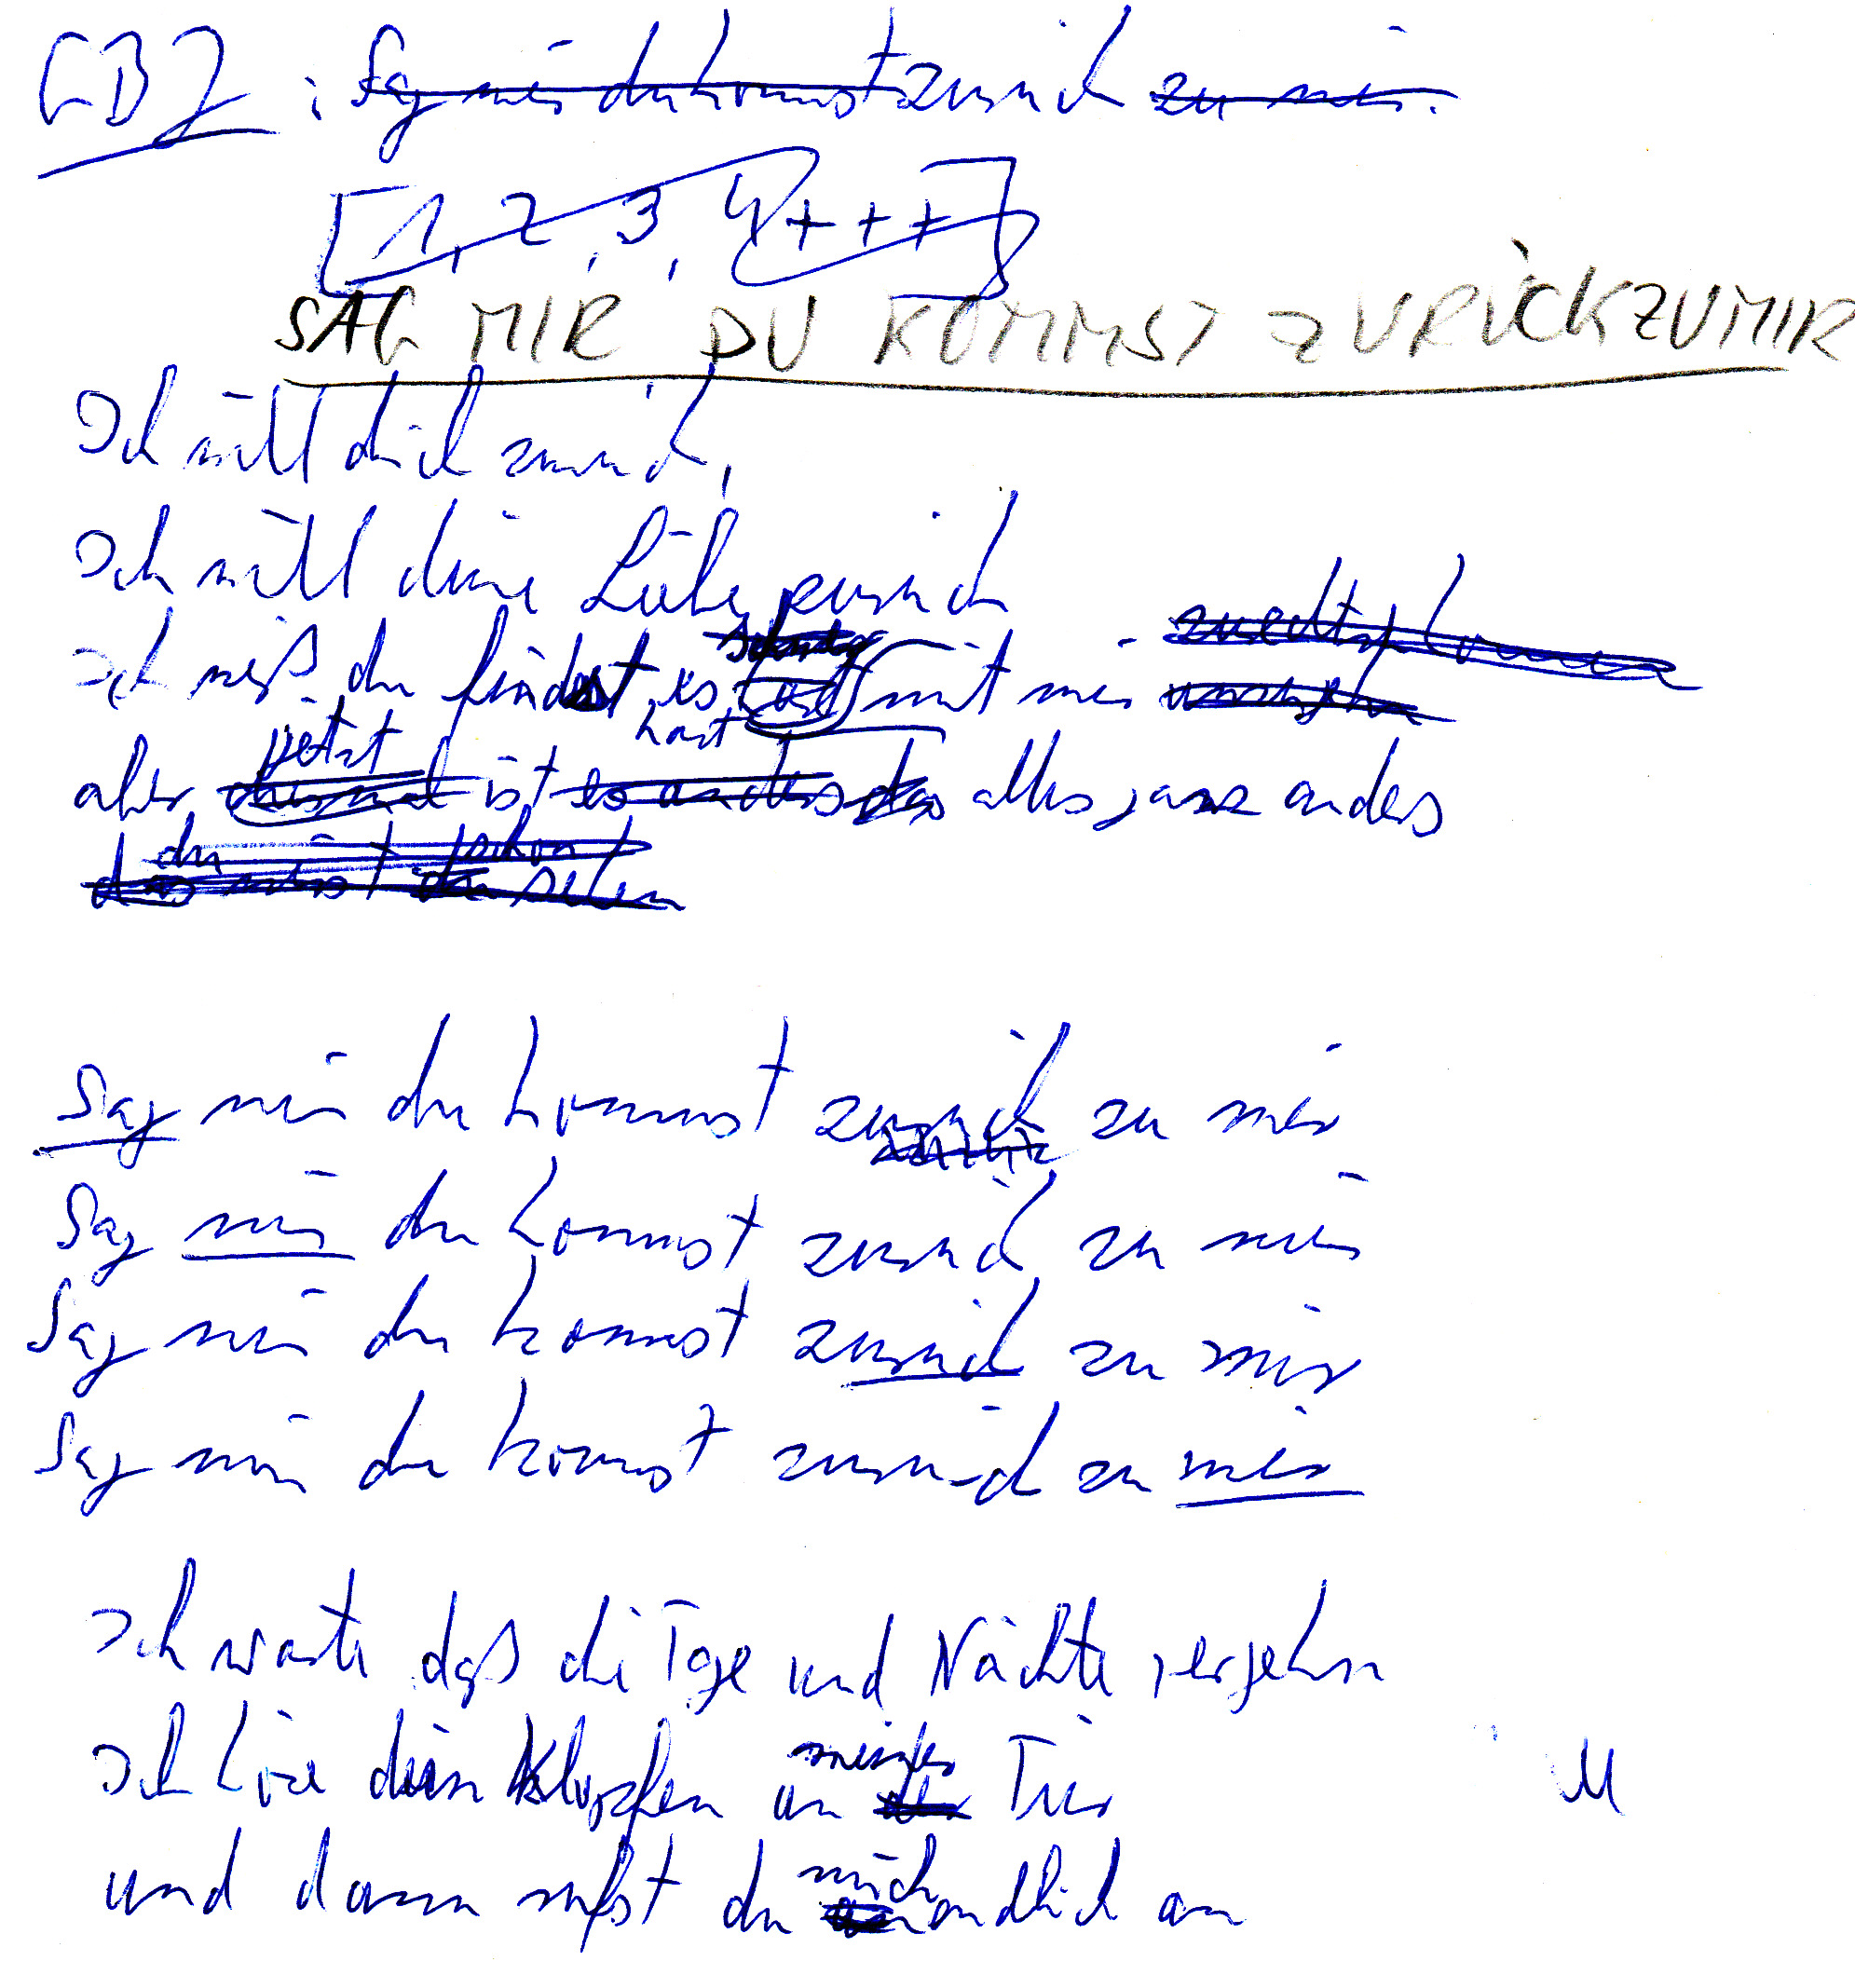 CDJ : Sag mir du kommst zurück zu mir.
[1, 2, 3, 4 + + +]
SAG MIR DU KOMMST ZURÜCK ZU MIR
Ich will dich zurück,
Ich will deine Liebe zurück
Ich weiß du findest es hart mit mir
aber jetzt ist alles ganz anders
du schon
das wirst du sehen
Sag mir du kommst zurück zu mir
Sag mir du kommst zurück zu mir
Sag mir du kommst zurück zu mir
Sag mir du kommst zurück zu mir
Ich warte daß die Tage und Nächte vergehn
Ich höre dein Klopfen an meiner Tür
und dann rufst du mich endlich an